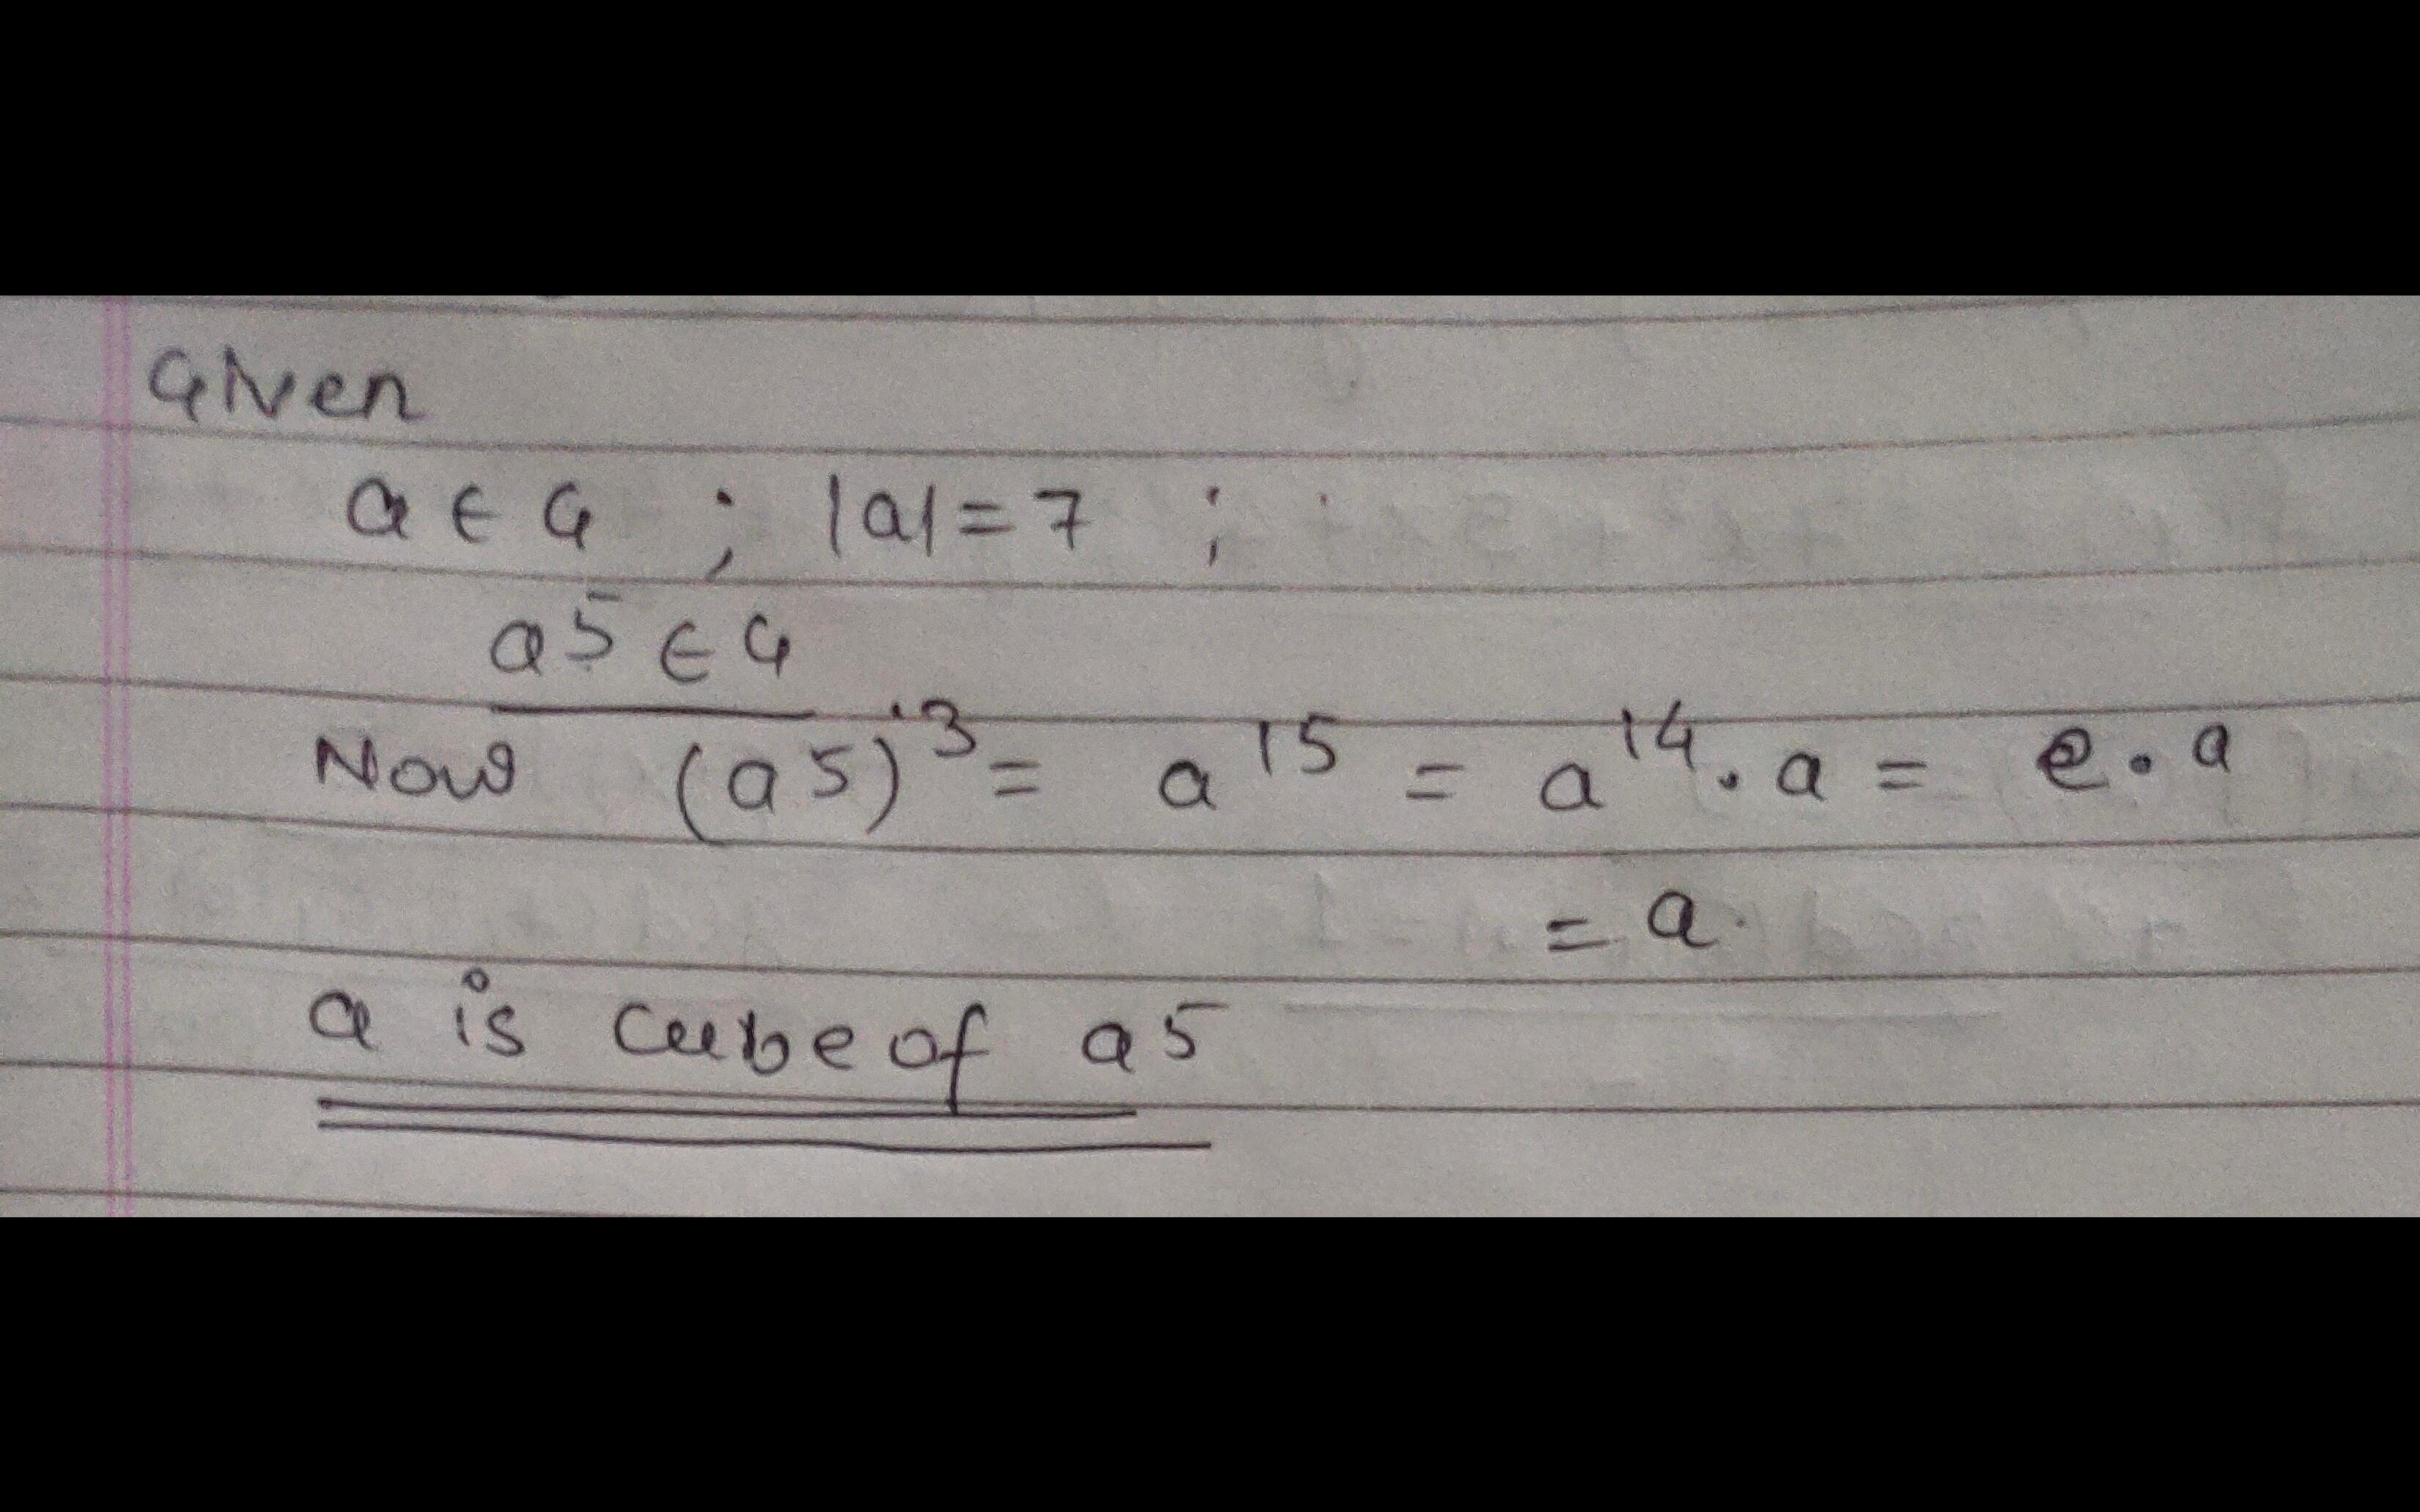 Given
a ∈ G ; |a| = 7 ;
a⁵ ∈ G
Now (a⁵)³ = a¹⁵ = a¹⁴ · a = e · a
= a.
a is cube of a⁵